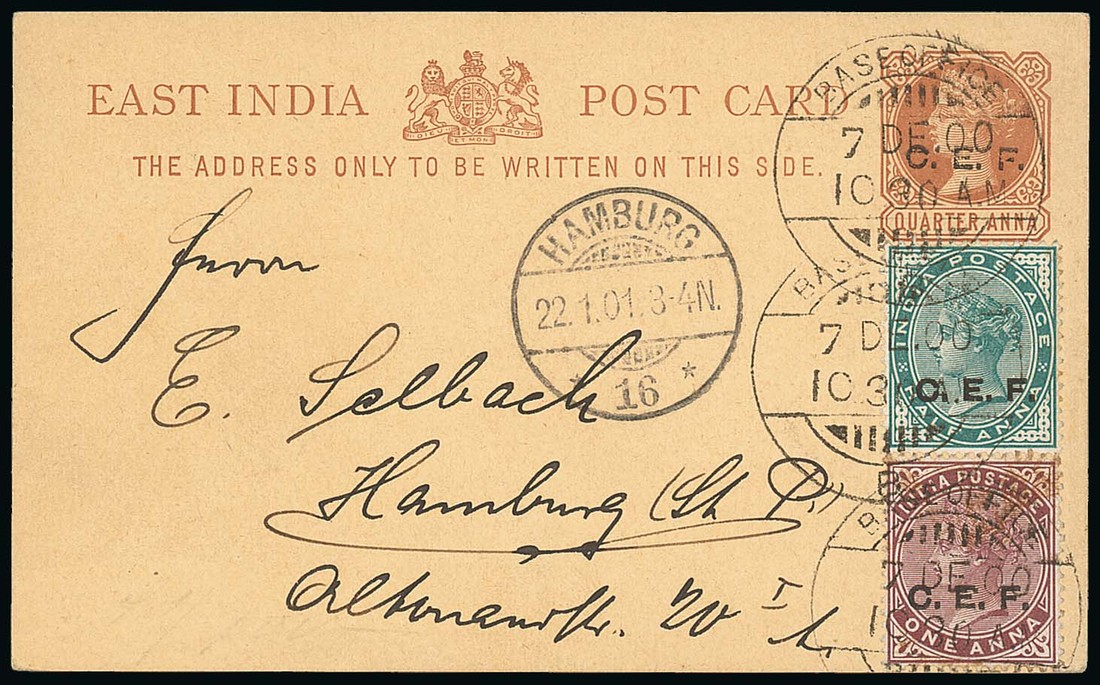 EAST INDIA POST CARD
DIEU ET MON DROIT
THE ADDRESS ONLY TO BE WRITTEN ON THIS SIDE.
BASE OFFICE
7 DE.00
10.30 A.M.
C. E. F.
QUARTER ANNA
Herrn
HAMBURG
22.1.01.3-4N.
* 16 *
BASE
7 DE.00
10.30 A.
INDIA POSTAGE
C. E. F.
HALF ANNA
E. Selbach
Hamburg (St. P.)
Altonaerstr. 20 I
INDIA POSTAGE
BASE OFFICE
7 DE.00
10.30 A.
C. E. F.
ONE ANNA